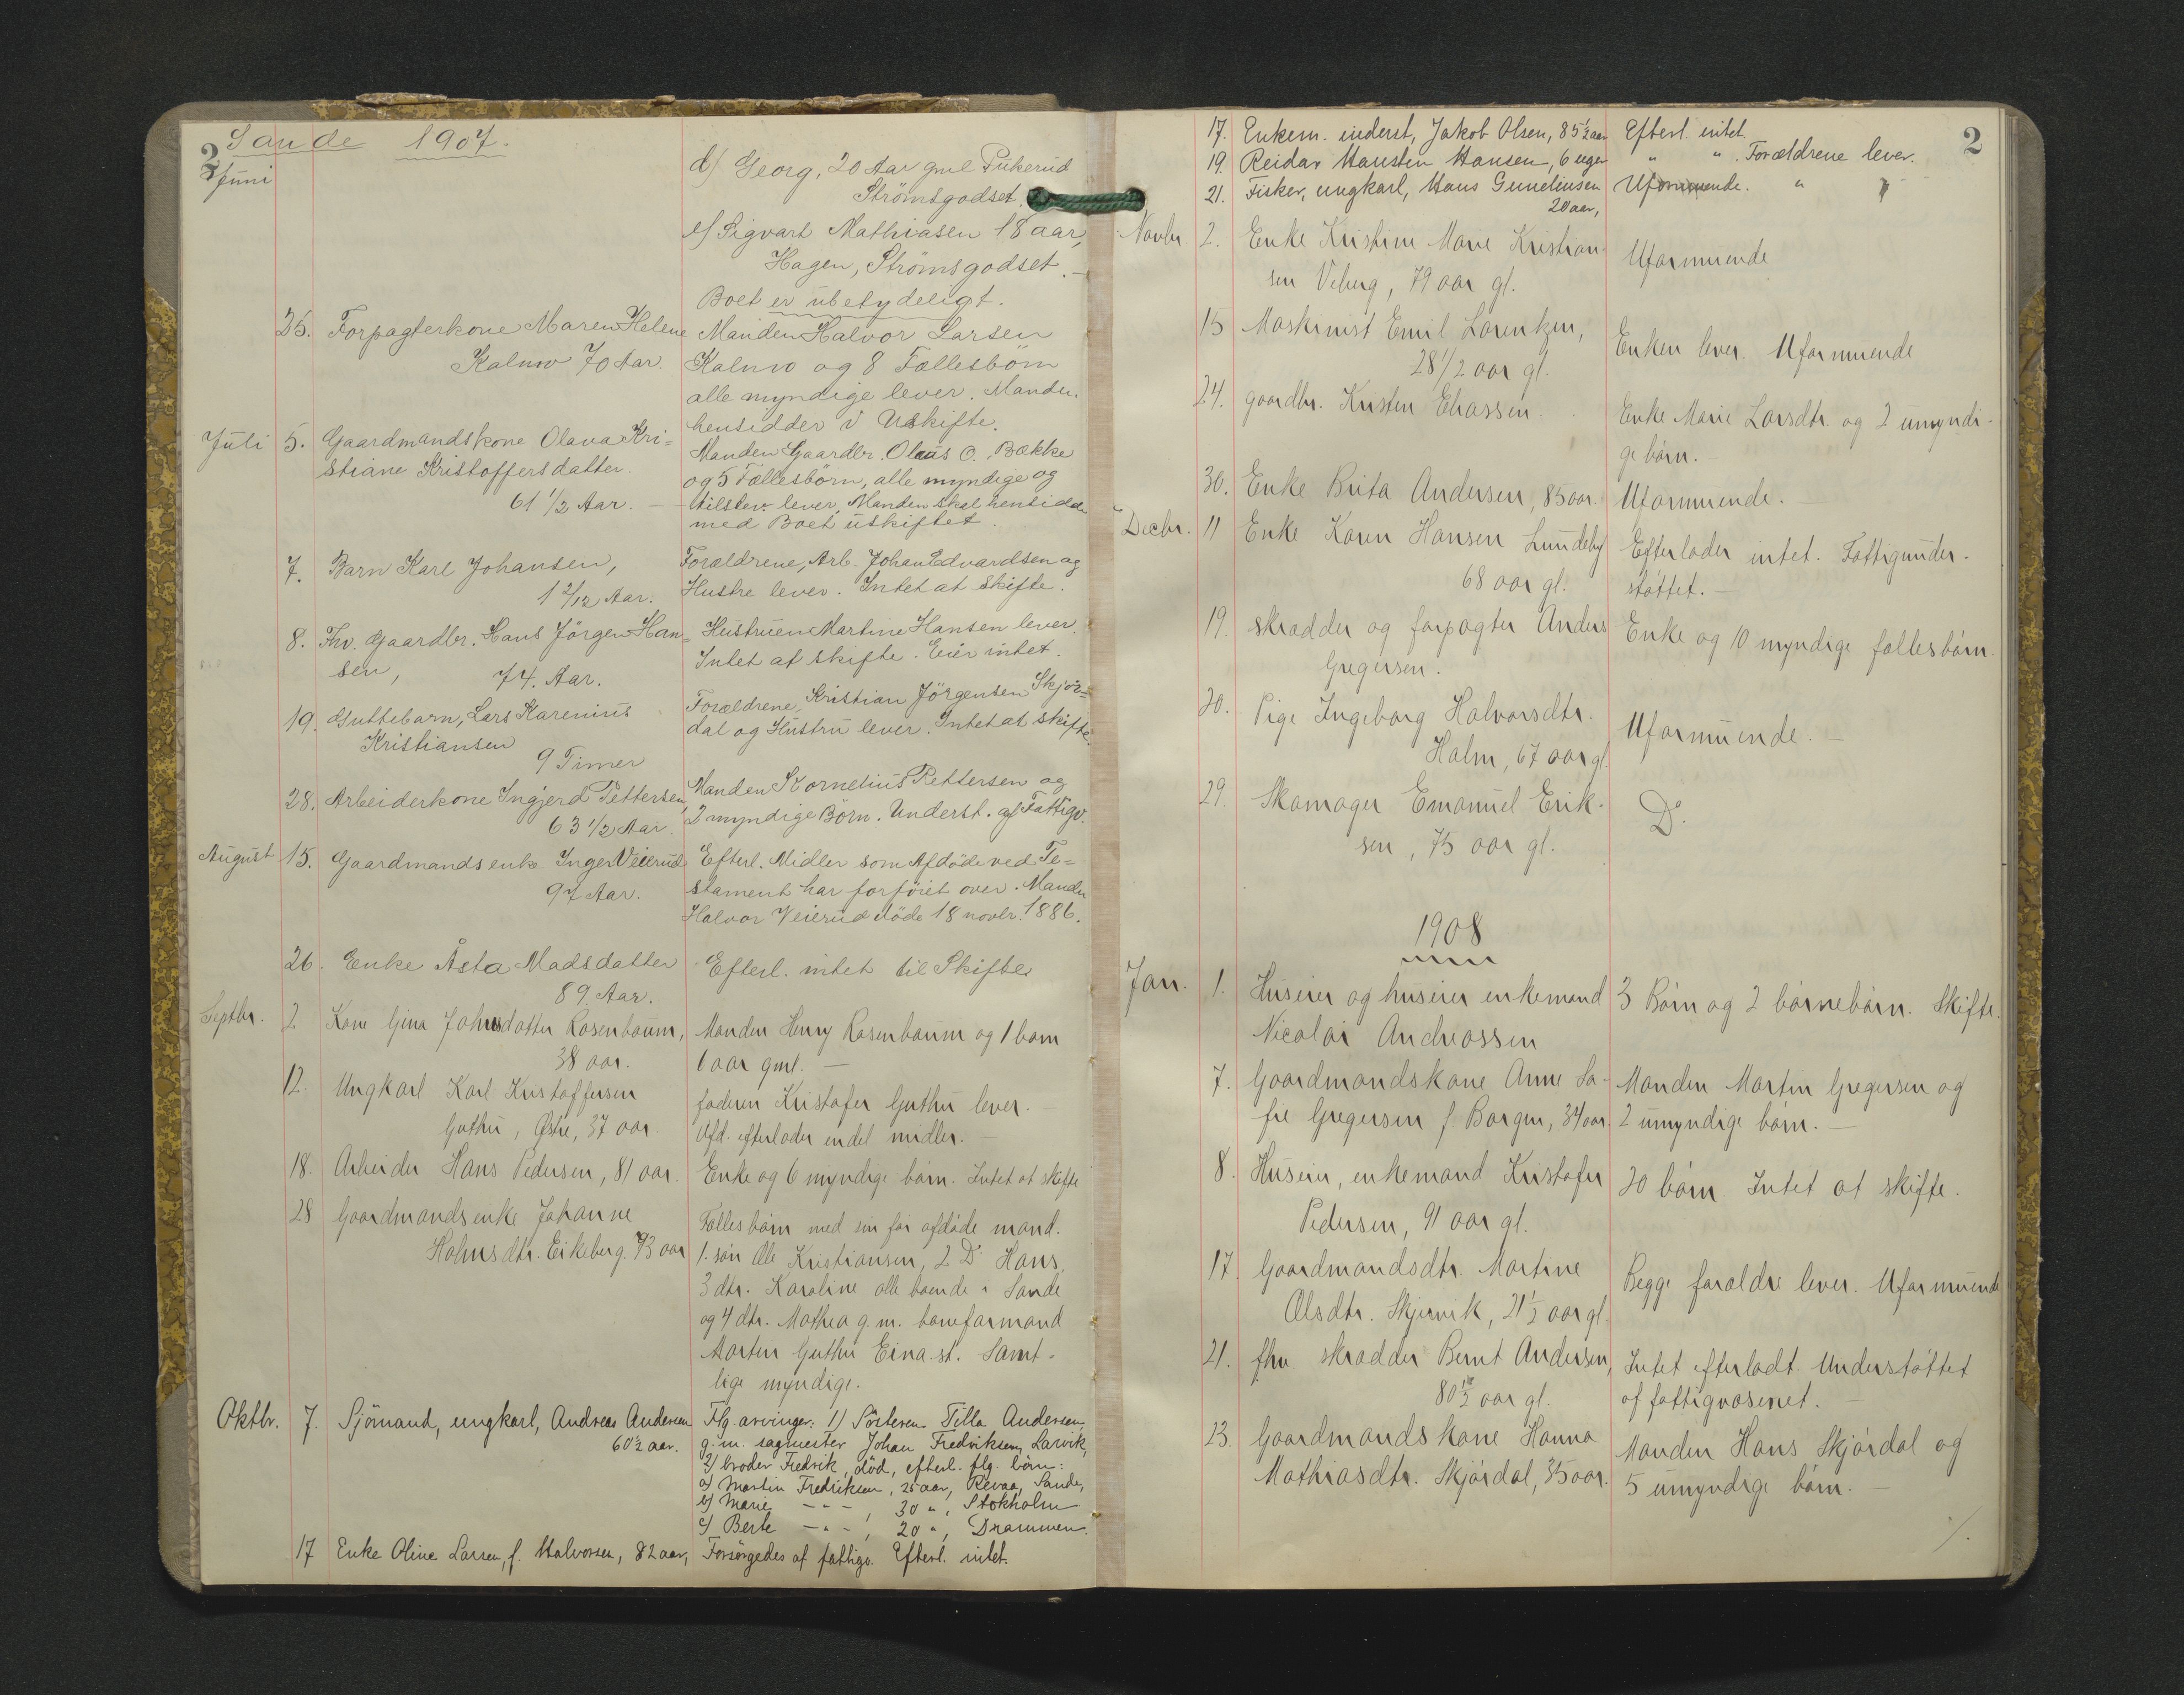 Sande 1907.
2
Juni
d) Georg, 20 Aar gml Pukerud
Strömsgodset.
e) Sigvart Mathiasen 18 aar,
Hagen, Strömsgodset. -
Boet er ubetydeligt.
25. Forpagterkone Maren Helene
Kalnro 70 Aar.
Manden Halvor Larsen
Kalnro og 8 Fællesbörn
alle myndige lever. Manden
hensidder i Uskifte.
Juli 5. Gaardmandskone Olava Kri=
stiane Kristoffersdatter.
61 1/2 Aar. -
Manden Gaardbr. Olaus O. Bække
og 5 Fællesbörn, alle myndige og
tilstev. lever. Manden skal hensidde
med Boet uskiftet.
7. Barn Karl Johansen,
1 2/12 Aar.
Forældrene, Arb. Johan Edvardsen og
Hustre lever. Intet at Skifte.
8. Fhv. Gaardbr. Hans Jörgen Han=
sen, 74. Aar.
Hustruen Martine Hansen lever.
Intet at skifte. Eier intet.
19. Guttebarn, Lars Karenius
Kristiansen
9 Timer
Forældrene, Kristian Jörgensen Skjör=
dal og Hustru lever. Intet at skifte.
28. Arbeiderkone Ingjerd Pettersen,
63 1/2 Aar.
Manden Kornelius Pettersen og
2 myndige Börn. Underst. af Fattigv.
August 15. Gaardmandsenke Inger Veierud
97 Aar.
Efterl. Midler som Afdöde ved Te=
stament har forföiet over. Manden
Halvor Veierud döde 18 novbr. 1886.
26. Enke Åsta Madsdatter
89. Aar.
Efterl. intet til Skifte
Septbr. 2 Kone Gina Johnsdatter Rosenbaum,
38 aar.
Manden Henry Rosenbaum og 1 barn
1 aar gml. -
12. Ungkarl Karl Kristoffersen
Guthu, Østre, 37 aar.
faderen Kristofer Guthu lever. -
Afd. efterlader endel midler. -
18. Arbeider Hans Pedersen, 81 aar.
Enke og 6 myndige börn. Intet at skifte
28 Gaardmandsenke Johanne
Holmsdtr. Eikeberg. 73 aar
Fælles börn med sin för afdöde mand.
1. sön Ole Kristiansen, 2 Do Hans,
3 dtr. Karoline alle boende i Sande
og 4 dtr. Mathea g. m. baneformand
Martin Guthu Eina st. Samt-
lige myndige.
Oktbr. 7. Sjömand, ungkarl, Andreas Andersen
60 1/2 aar.
Flg. arvinger: 1) Sösteren Tilla Andersen
g. m. sagmester Johan Fredriksen, Larvik,
2) broder Fredrik, död, efterl. flg. börn:
a) Martin Fredriksen, 25 aar, Revaa, Sande,
b) Marie - " - , 30 " , Stokholm
c) Berte - " - , 20 " , Drammen.
17 Enke Oline Larsen, f. Halvorsen, 82 aar,
Forsörgedes af fattigv. Efterl. intet.
2
17. Enkem. inderst, Jakob Olsen, 85 1/2 aar
Efterl. intet.
19. Reidar Hansten Hansen, 6 uger
" " . Forældrene lever.
21. Fisker, ungkarl, Hans Gundinsen
20 aar,
Uformuende. " "
Novbr. 2. Enke Kristine Marie Kristian-
sen Viberg, 79 aar gl.
Uformuende
15 Maskinist Emil Lorentzen,
28 1/2 aar gl.
Enken lever. Uformuende
24. gaardbr. Kristen Eliassen.
Enke Marie Larsdtr. og 2 umyndi-
ge börn. -
30. Enke Brita Andersen, 85 aar.
Uformuende. -
Decbr. 11 Enke Karen Hansen Lundeby
68 aar gl.
Efterlader intet. Fattigunder-
støttet. -
19. skrædder og forpagter Anders
Gregersen.
Enke og 10 myndige fællesbörn.
20. Pige Ingeborg Halvorsdtr.
Holm, 67 aar gl.
Uformuende. -
29. Skomager Emanuel Erik-
sen, 75 aar gl.
Do.
1908
Jan. 1. Huseier og huseier enkemand
Nicolai Andreassen
3 Börn og 2 börnebörn. Skifte.
7. Gaardmandskone Anne So-
fie Gregersen f Borgen, 34 aar.
Manden Martin Gregersen og
2 umyndige börn. -
8. Huseier, enkemand Kristofer
Pedersen, 91 aar gl.
20 börn. Intet at skifte.
17. Gaardmandsdtr. Martine
Olsdtr. Skjervik, 21 1/2 aar gl.
Begge forældre lever. Uformuende
21. fhv. skrædder Bernt Andersen,
80 1/2 aar gl.
Intet efterladt. Understøttet
af fattigvæsenet. -
23. Gaardmandskone Hanna
Mathiasdtr. Skjördal, 35 aar.
Manden Hans Skjördal og
5 umyndige börn. -